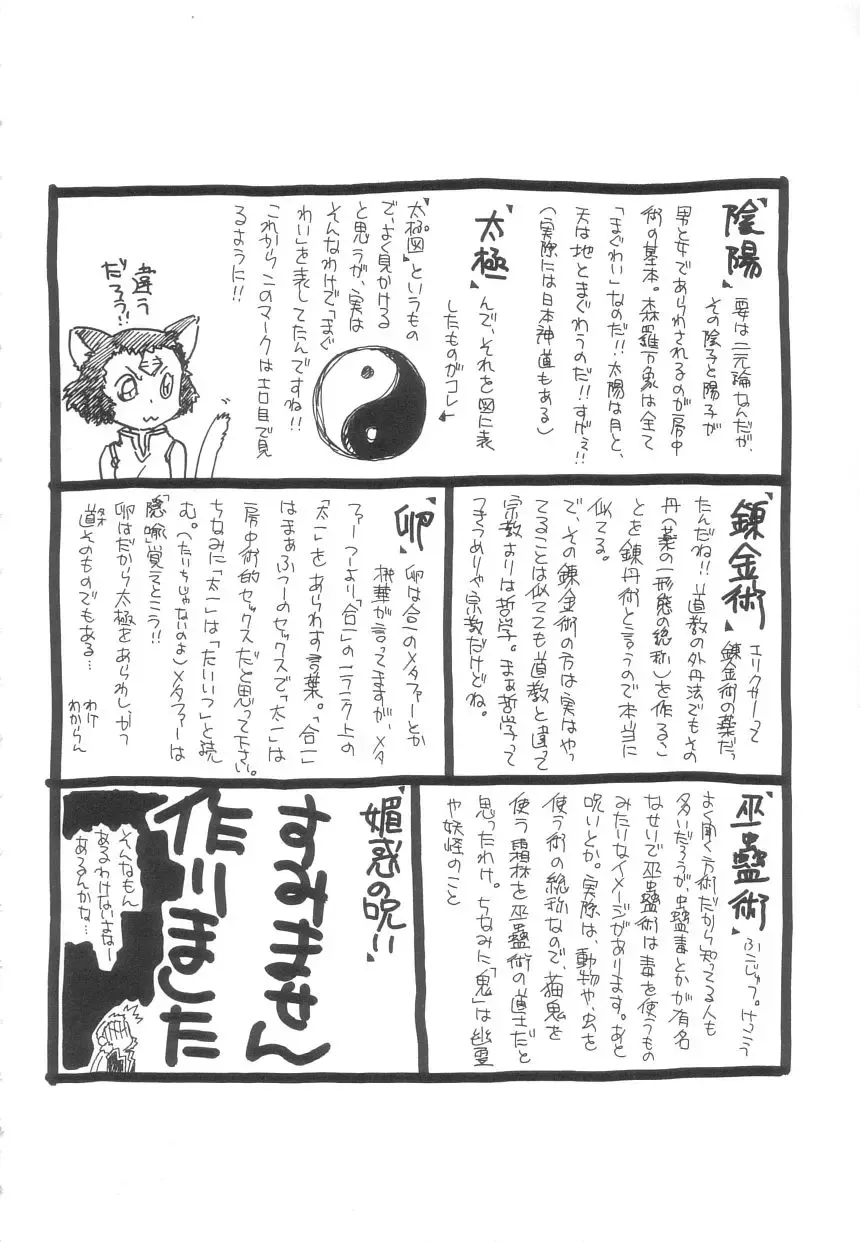 陰陽
要は二元論なんだが、
その陰子と陽子が
男と女であらわされるのが房中
術の基本。森羅万象は全て
「まぐわい」なのだ!!太陽は月と、
天は地とまぐわうのだ!!すげぇ!!
(実際には日本神道もある)
太極
んで、それを図に表
したものがコレ
"太極図"というもの
で、よく見かける
と思うが、実は
そんなわけで「まぐ
わい」を表してたんですね!!
これからこのマークはエロ目で見
るように!!
違う
だろう!!
錬金術
エリクサーって
錬金術の薬だっ
たんだね!!道教の外丹法でもその
丹(薬の一形態の総称)を作るこ
とを錬丹術と言うので本当に
似てる。
で、その錬金術の方は実はやっ
てることは似てても道教と違って
宗教よりは哲学。まあ哲学って
つきつめりゃ宗教だけどね。
卵
卵は合一のメタファーとか
琳華が言ってますが、メタ
ファーつーより「合一」の一ランク上の
「太一」をあらわす言葉。「合一」
はまぁふつーのセックスで、「太一」は
房中術的セックスだと思って下さい。
ちなみに「太一」は「たいいつ」と読
む。(たいちじゃないのよ)メタファーは
「隠喩」覚えとこう!!
卵はだから太極をあらわしかつ
道そのものでもある…
タオ
わけ
わからん
巫蠱術
ふこじゅつ。けっこう
よく聞く方術だから知ってる人も
多いだろうが、蟲毒とかが有名
なせいで巫蠱術は毒を使うもの
みたいなイメージがあります。あと
呪いとか。実際は、動物や、虫を
使う術の総称なので、猫鬼を
使う霜林を巫蠱術の道士だと
思ったわけ。ちなみに「鬼」は幽霊
や妖怪のこと
媚惑の呪い
すみません
作りました
そんなもん
あるわけないよなー
あるんかな…